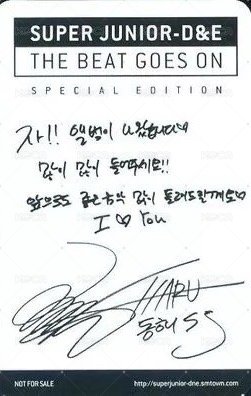 SUPER JUNIOR-D&E
THE BEAT GOES ON
SPECIAL EDITION
자!! 앨범이 나왔습니다♡
많이 많이 들어주세요!!
앞으로도 좋은음악 많이 들려드릴게요♡
I ♡ You
HARU
동해 SJ
NOT FOR SALE
http://superjunior-dne.smtown.com